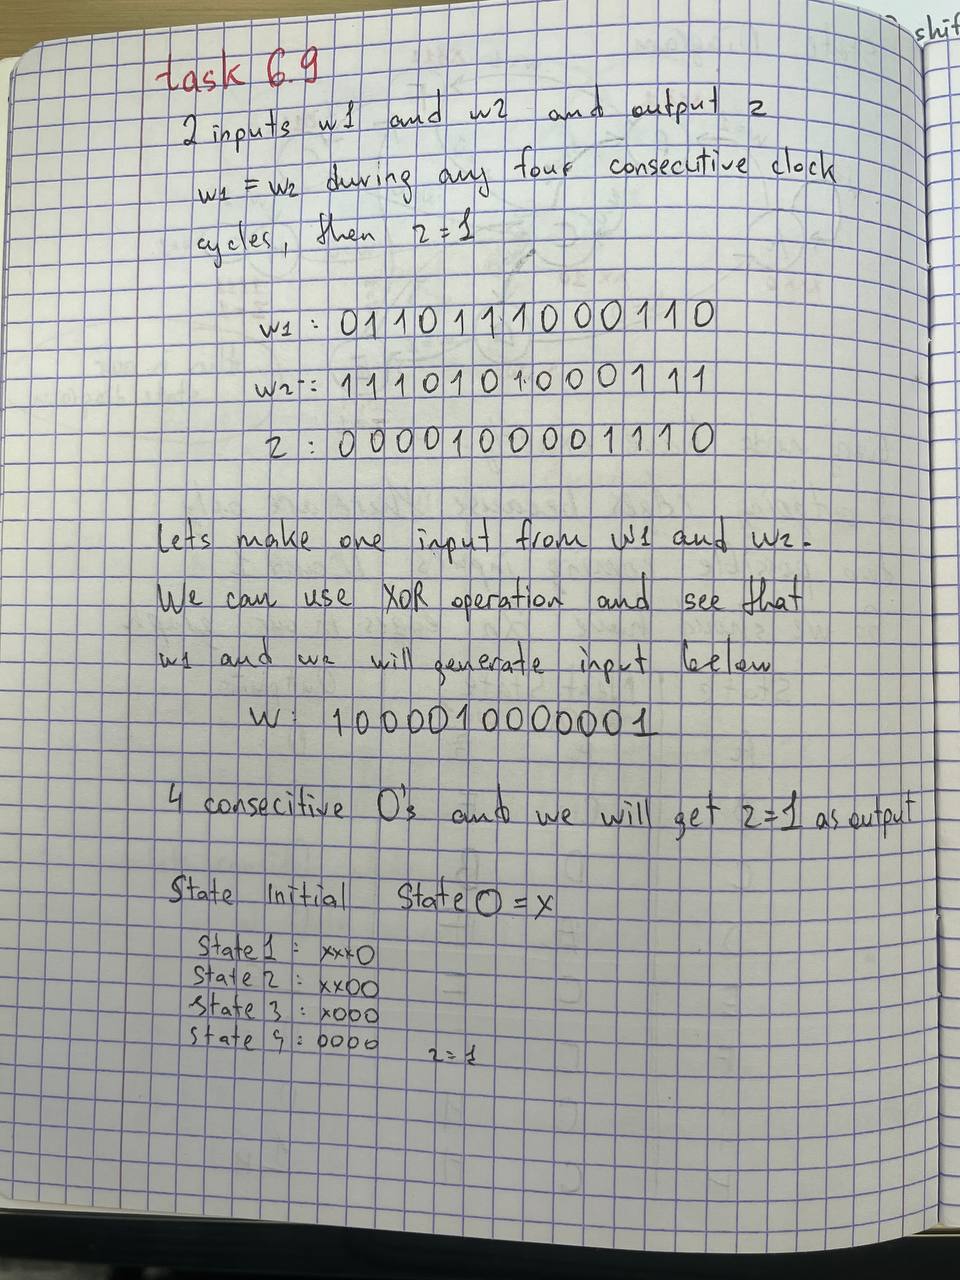 shif
task 6.9
2 inputs w1 and w2 and output z
w1 = w2 during any four consecutive clock
cycles, then z=1
w1 : 01101111000110
w2 : 11101010001 11
z : 00001000011110
Lets make one input from w1 and w2.
We can use XOR operation and see that
w1 and w2 will generate input below
W: 1000010000001
4 consecitive 0's and we will get z=1 as output
State Initial State 0 = x
State 1 : xxx0
State 2 : xx00
State 3 : x000
State 4 : 0000 z=1